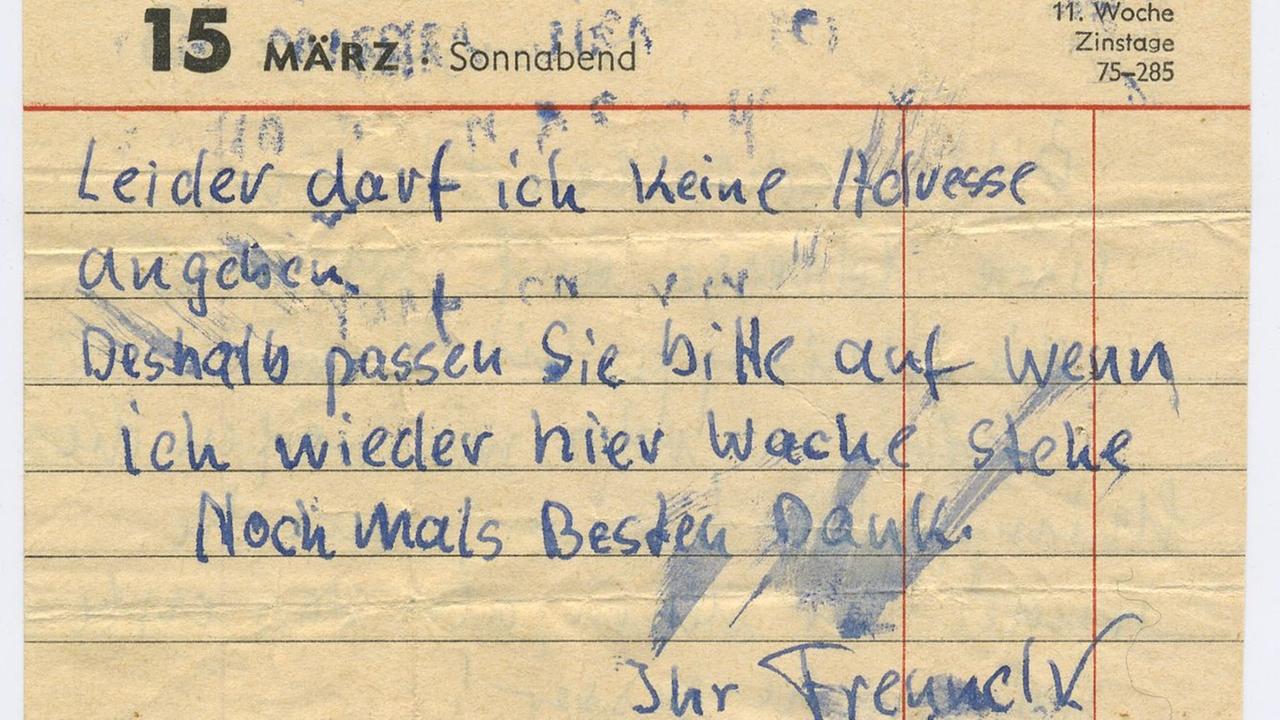 15 MÄRZ · Sonnabend
11. Woche
Zinstage
75–285
Leider darf ich keine Adresse
angeben.
Deshalb passen Sie bitte auf wenn
ich wieder hier Wache stehe
Noch mals Besten Dank.
Ihr Freund